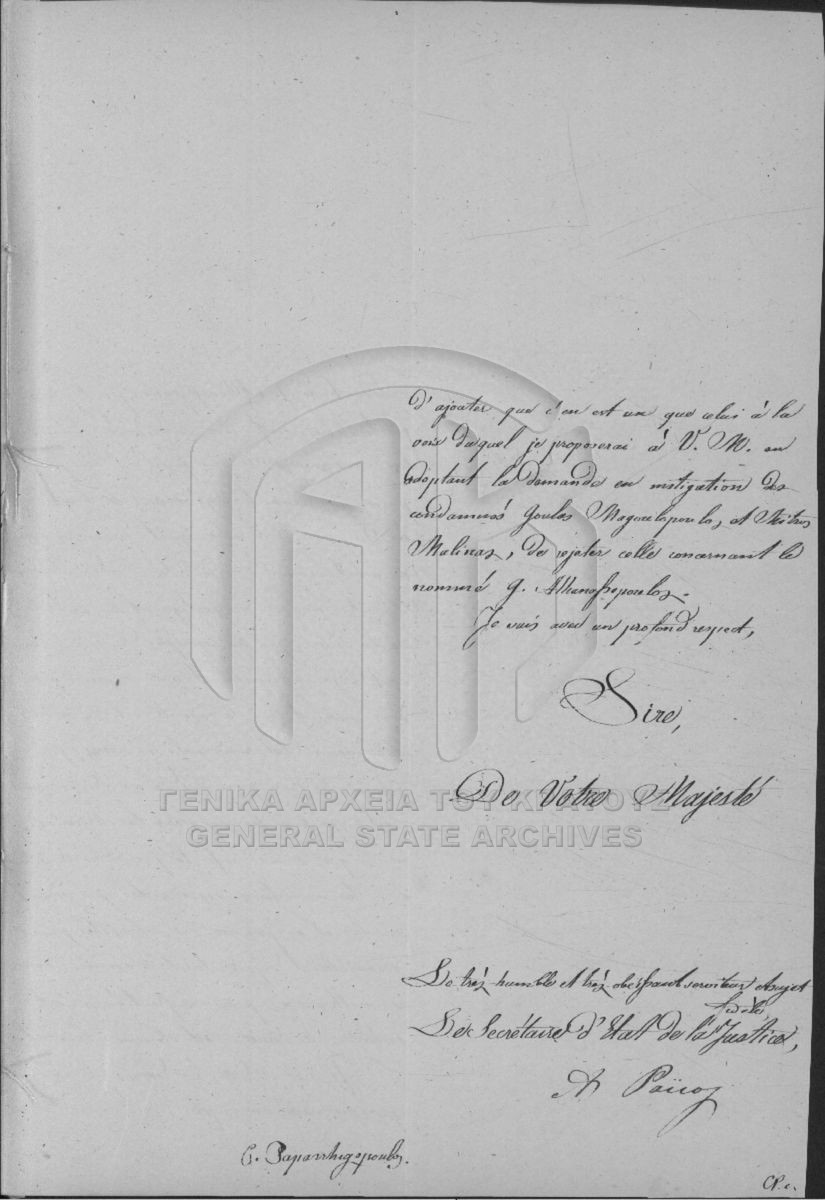 d'ajouter que c'en est un que celui à la
voix duquel je proposerai à V. M. en
adoptant la demande en mitigation des
condamnés Goulas Magoulopoulos et Mitros
Malinas, de rejeter celle concernant le
nommé G. Athanassopoulos.
Je suis avec un profond respect,
Sire,
De Votre Majesté
ΓΕΝΙΚΑ ΑΡΧΕΙΑ ΤΟΥ ΚΡΑΤΟΥΣ
GENERAL STATE ARCHIVES
Le très humble et très obéissant serviteur et sujet
fidèle,
Le Secrétaire d'Etat de la Justice,
Α Παΐκος
C. Paparrhigopoulos.